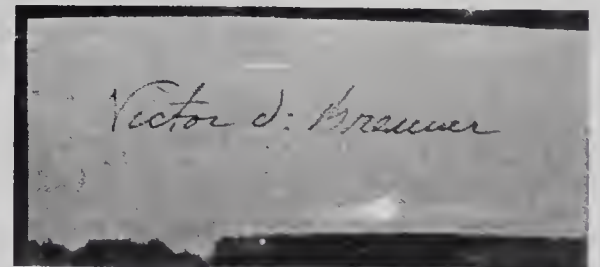 Victor D. Brenner